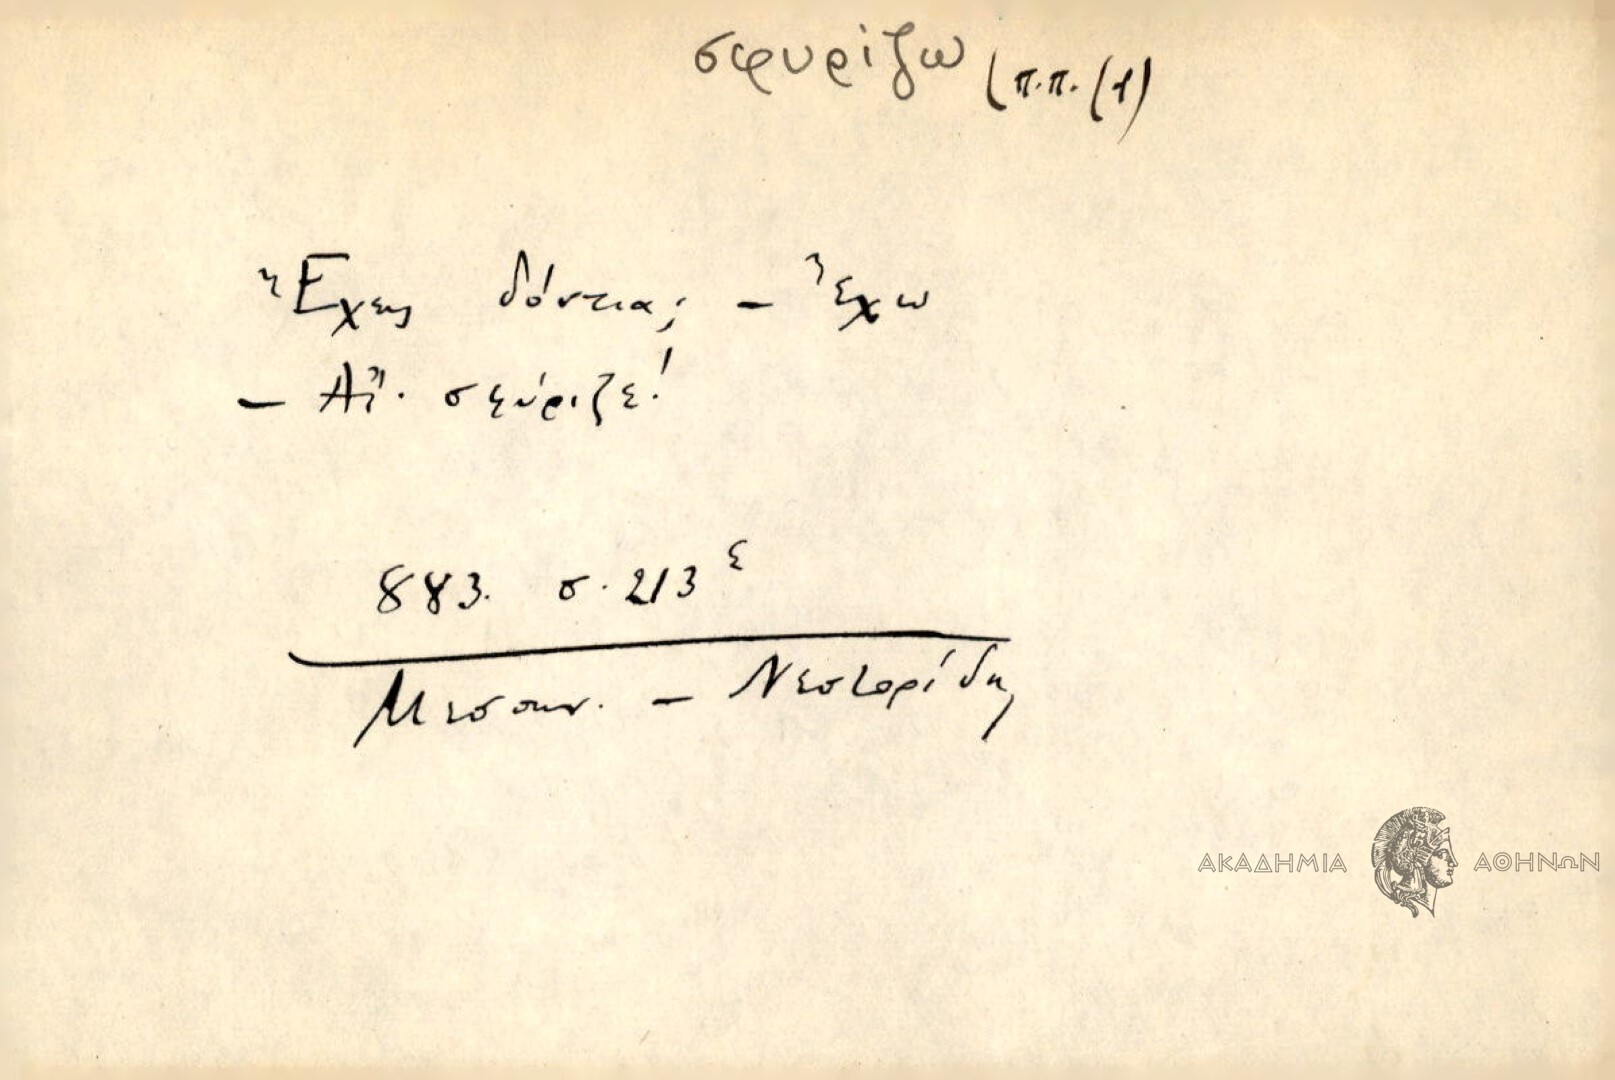 σφυρίζω (π.π. (1)
Ἔχεις δόντια; – Ἔχω
– Αἴ· σφύριζε!
883. σ. 213 ε
Μεσσην. – Νεστορίδης
ΑΚΑΔΗΜΙΑ ΑΘΗΝΩΝ